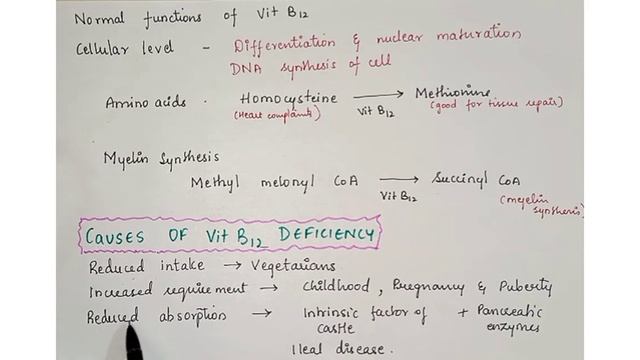 Normal functions of Vit B12
Cellular level - Differentiation & nuclear maturation
DNA synthesis of cell
Amino acids . Homocysteine → Methionine
(Heart complaints) Vit B12 (good for tissue repair)
Myelin synthesis
Methyl melonyl CoA → Succinyl CoA
Vit B12 (myelin
synthesis)
CAUSES OF Vit B12 DEFICIENCY
Reduced intake → Vegetarians
Increased requirement → Childhood, Pregnancy & Puberty
Reduced absorption → Intrinsic factor of + Pancreatic
castle enzymes
Ileal disease.